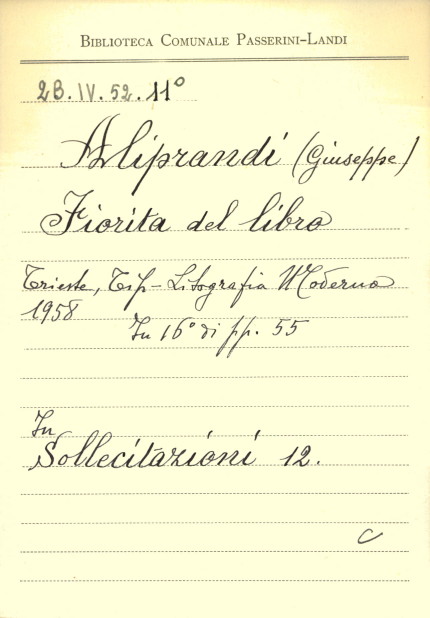 BIBLIOTECA COMUNALE PASSERINI-LANDI
2B.IV.52.11°
Aliprandi (Giuseppe)
Fiorita del libro
Trieste, Tip-Litografia Moderna
1958
In 16° di pp. 55
In
Sollecitazioni 12.
C